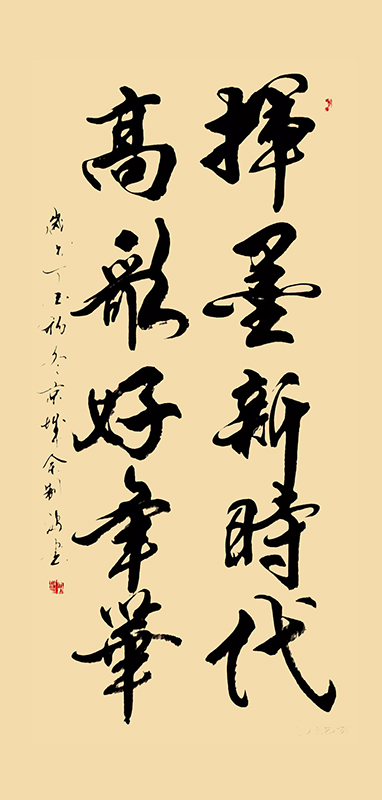 揮墨新時代
高歌好年華
歲次丁酉初冬京城